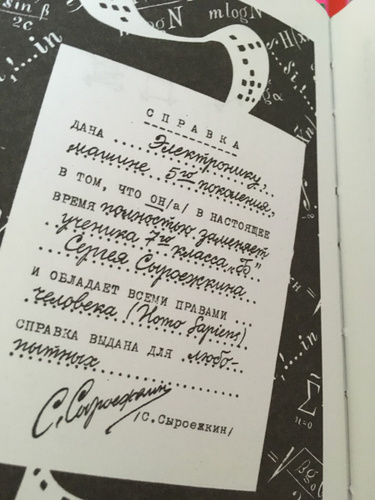 sin β
2c
logN
mlogN
СПРАВКА
ДАНА Электронику,
машине 5го поколения,
В ТОМ, ЧТО ОН/А/ В НАСТОЯЩЕЕ
ВРЕМЯ полностью заменяет
ученика 7го класса „Б"
Сергея Сыроежкина
И ОБЛАДАЕТ ВСЕМИ ПРАВАМИ
человека (Homo Sapiens)
СПРАВКА ВЫДАНА ДЛЯ любо-
пытных
С. Сыроежкин
/С.Сыроежкин/